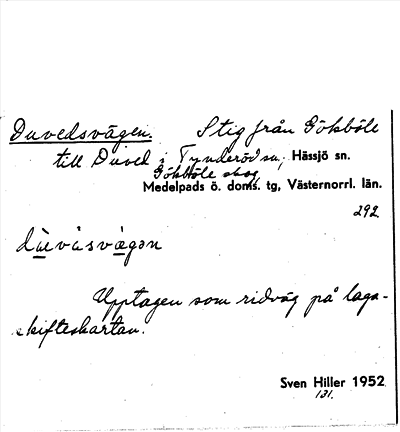 Duvedsvägen. Stig från Gökböle
till Duved i Tynderöd sn, Hässjö sn.
Gökböle skog,
Medelpads ö. doms. tg, Västernorrl. län.
292
Upptagen som ridväg på laga-
skifteskartan.
Sven Hiller 1952
131.